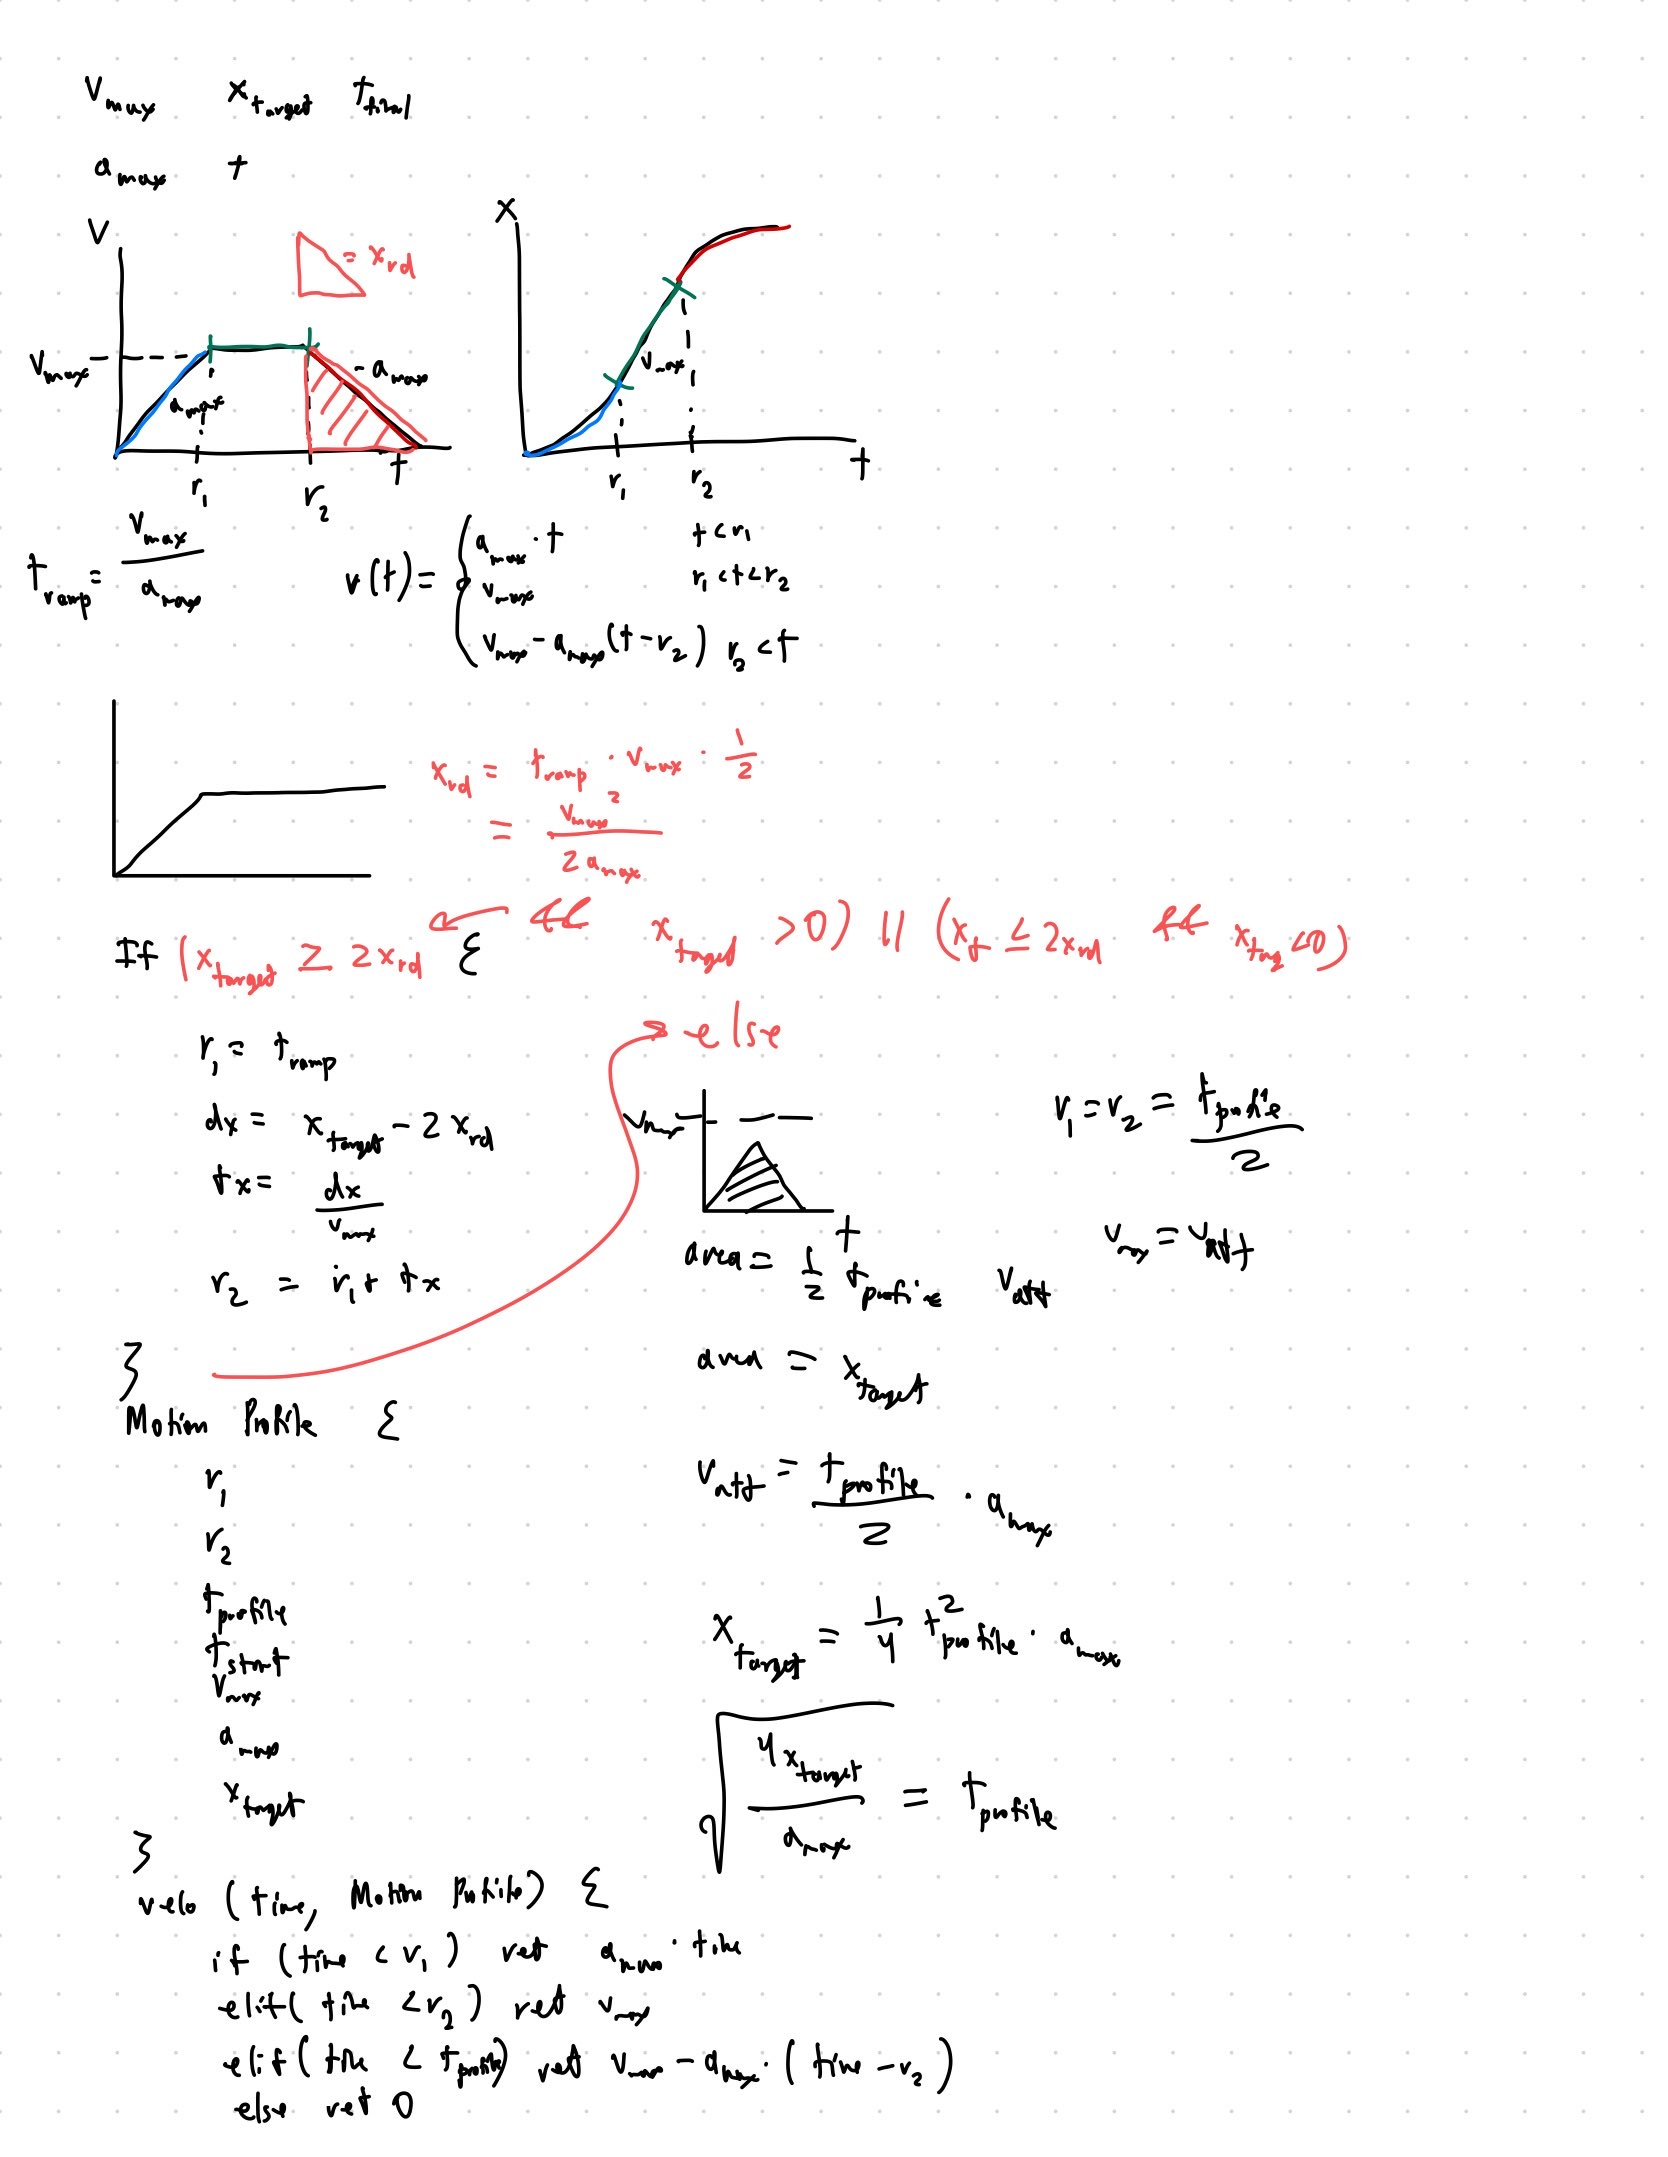 v_max x_target t_final
a_max t
V
= x_rd
v_max
a_max
- a_max
r_1 r_2 t
X
v_max
r_1 r_2 t
t_ramp = v_max / a_max
v(t) = { a_max · t t < r_1
v_max r_1 < t < r_2
v_max - a_max (t - r_2) r_2 < t
x_rd = t_ramp · v_max · 1/2
= v_max^2 / 2 a_max
If (x_target ≥ 2 x_rd { && x_target > 0) || (x_t ≤ 2x_rd && x_targ < 0)
r_1 = t_ramp
dx = x_target - 2 x_rd
tx = dx / v_max
r_2 = r_1 + tx
}
else
v_max
t
r_1 = r_2 = t_profile / 2
v_max = v_att
area = 1/2 t_profile v_att
area = x_target
v_att = t_profile / 2 · a_max
x_target = 1/4 t^2_profile · a_max
√(4 x_target / a_max) = t_profile
Motion Profile {
r_1
r_2
t_profile
t_start
v_max
a_max
x_target
}
velo (time, Motion Profile) {
if (time < r_1) ret a_max · time
elif (time < r_2) ret v_max
elif (time < t_profile) ret v_max - a_max · (time - r_2)
else ret 0